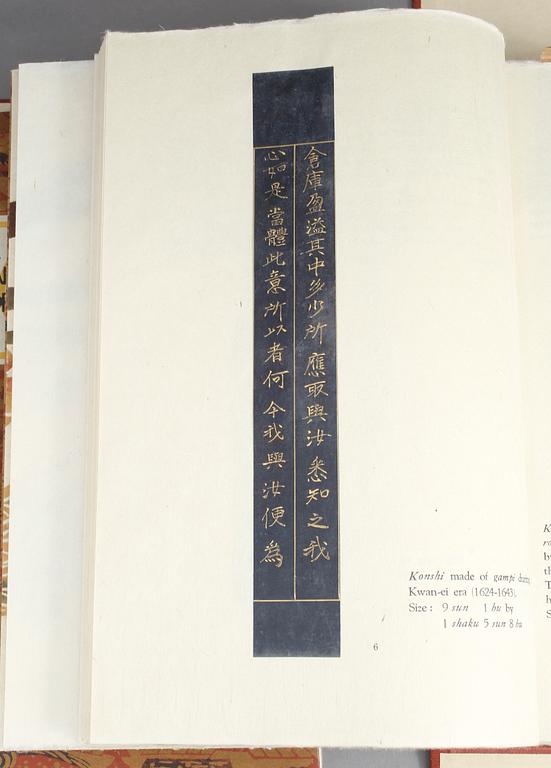 倉庫盈溢其中多少所應取與汝悉知之我
心如是當體此意所以者何今我與汝便為
Konshi made of gampi during
Kwan-ei era (1624-1643).
Size: 9 sun 1 bu by
1 shaku 5 sun 8 bu
6